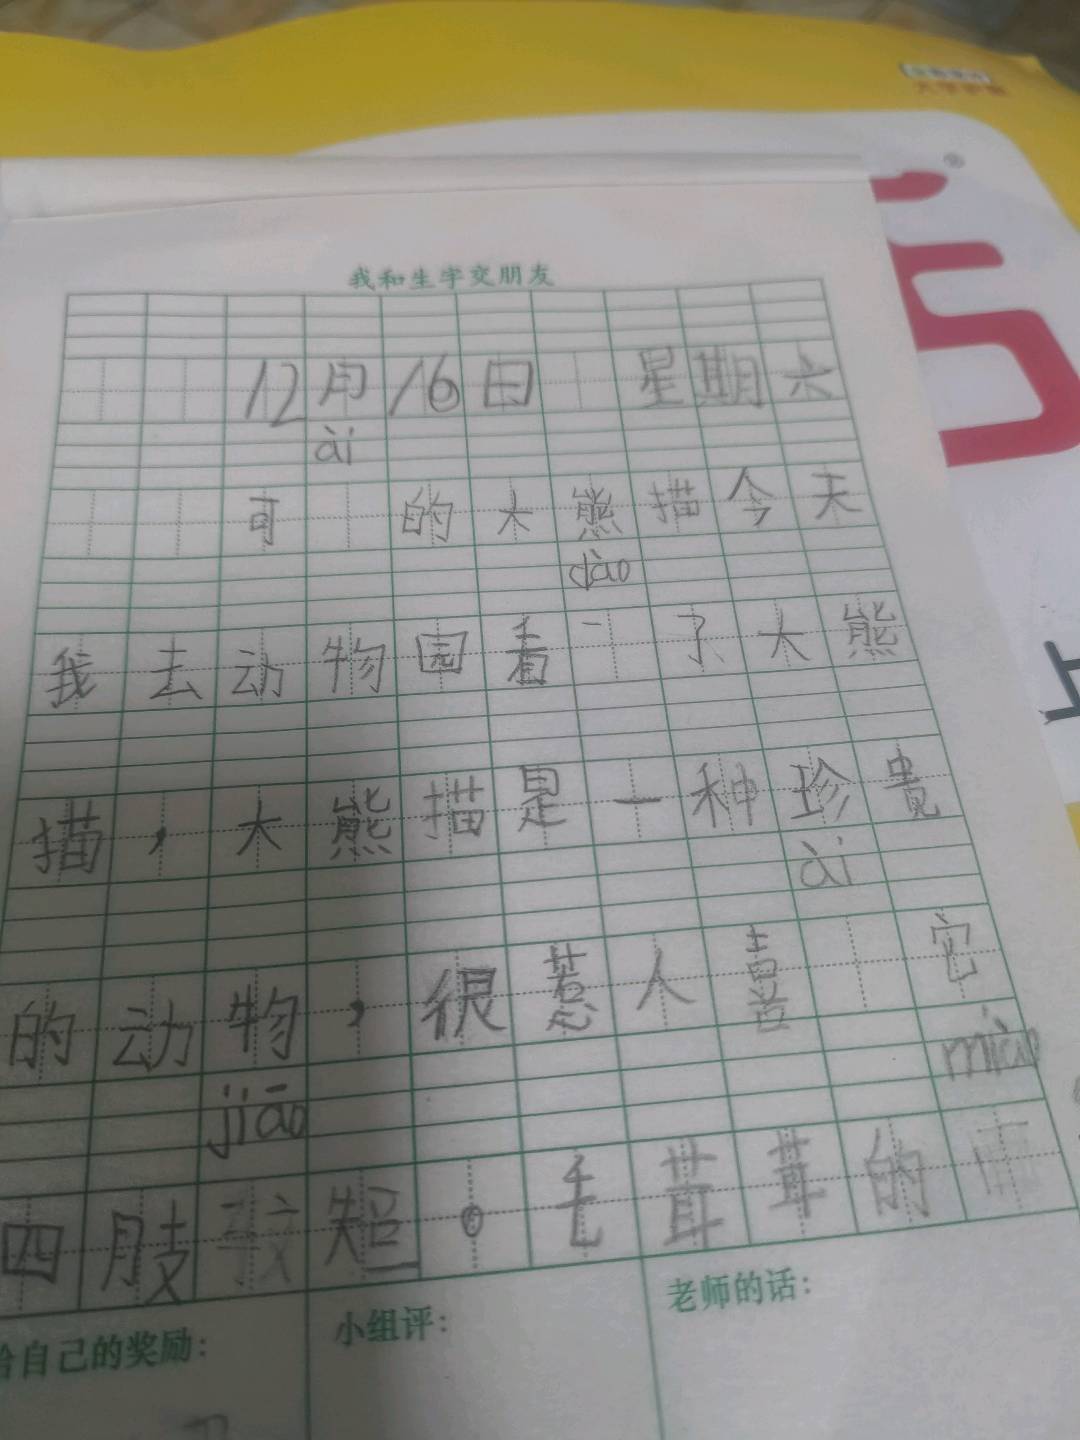 我和生字交朋友
12月16日 星期六
ài
可 的大熊描今天
dào
我去动物园看 了大熊
描,大熊描是一种珍贵
ài
的动物,很惹人喜 它
jiāo miào
四肢较短。毛茸茸的
给自己的奖励:
小组评:
老师的话:
上